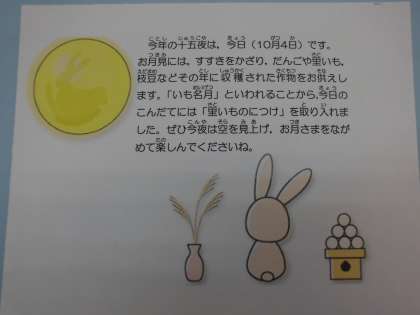 今年の十五夜は、今日（10月4日）です。
お月見には、すすきをかざり、だんごや里いも、
枝豆などその年に収穫された作物をお供えし
ます。「いも名月」といわれることから、今日の
こんだてには「里いものにつけ」を取り入れま
した。ぜひ今夜は空を見上げ、お月さまをなが
めて楽しんでくださいね。